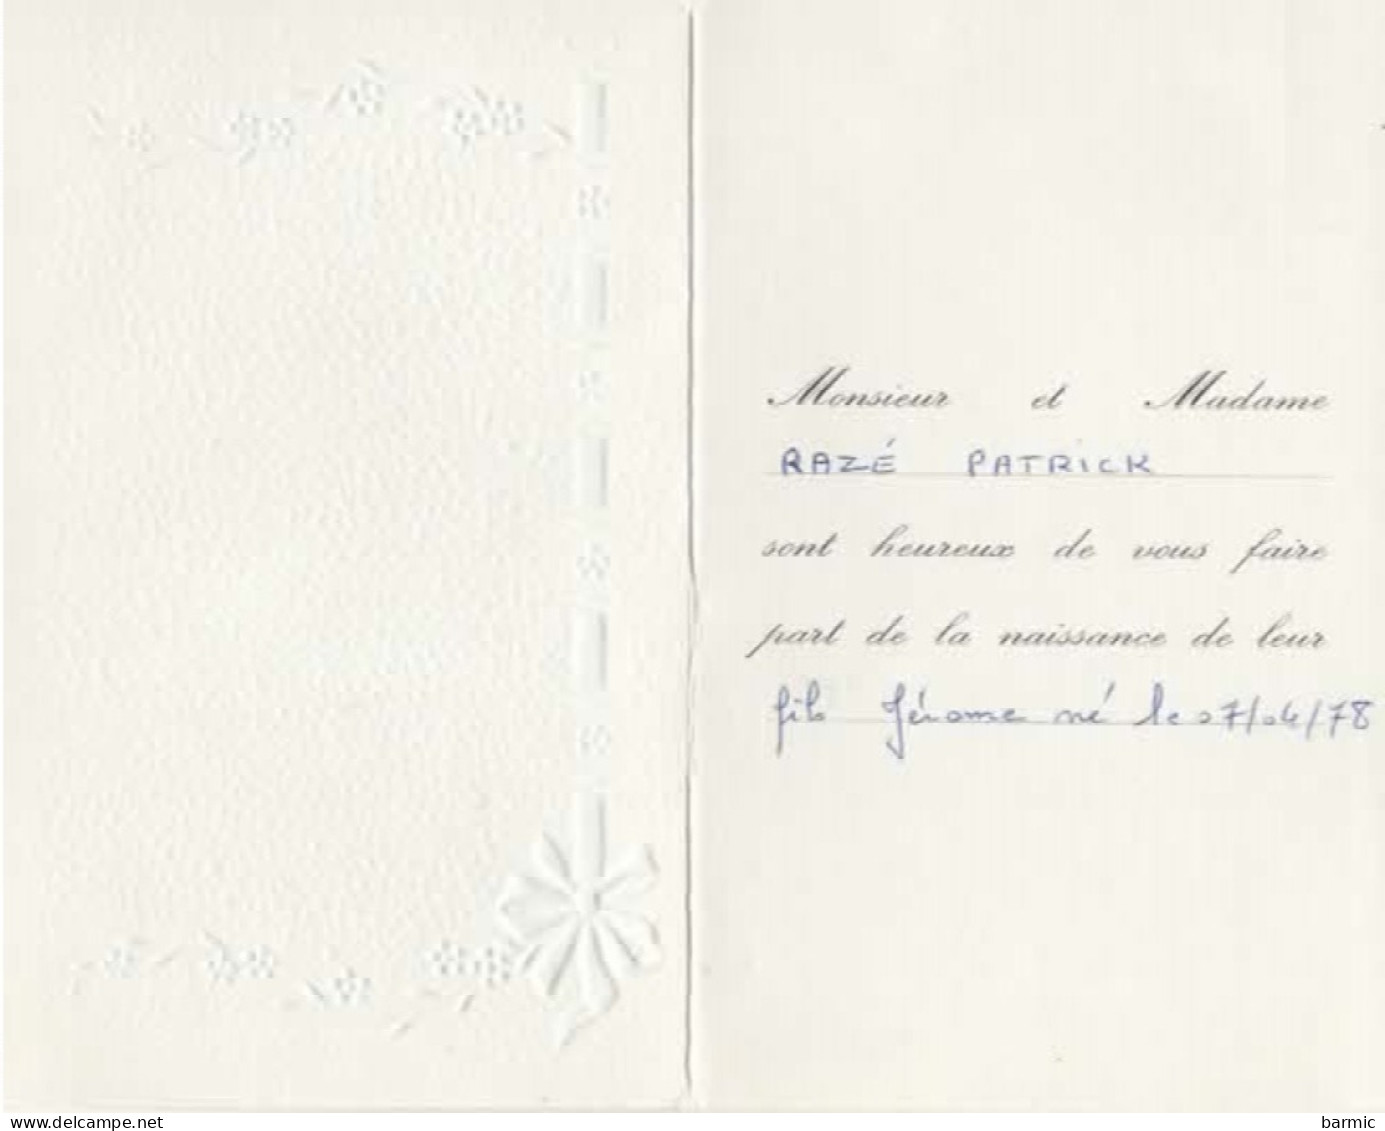 Monsieur et Madame
RAZÉ PATRICK
sont heureux de vous faire
part de la naissance de leur
fils Jérome né le 07/04/78
www.delcampe.net
barmic